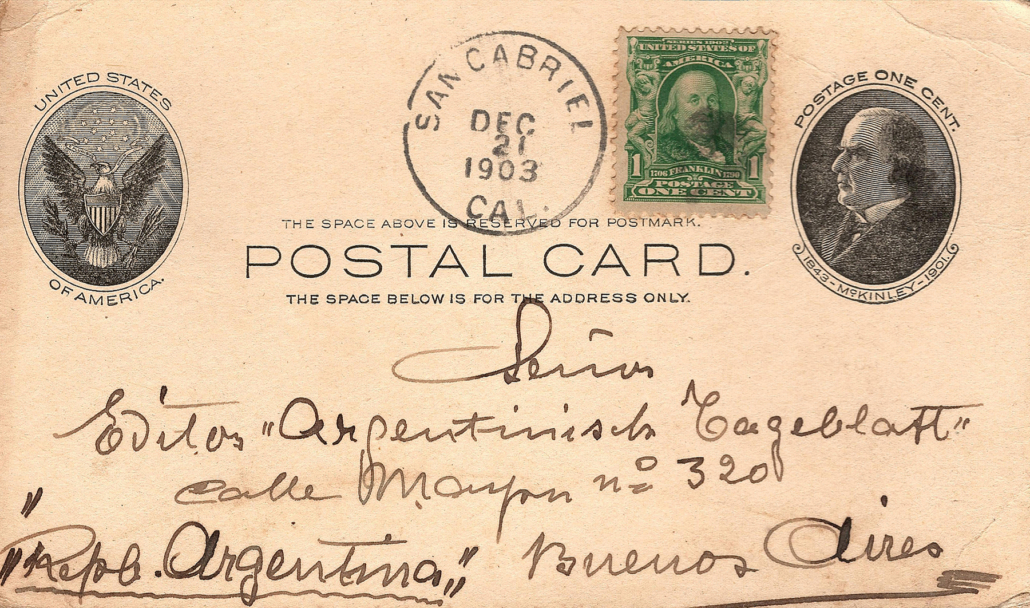 UNITED STATES
OF AMERICA.
SAN GABRIEL
DEC
21
1903
CAL.
SERIES 1902
UNITED STATES OF
AMERICA
1 1706 FRANKLIN 1790 1
POSTAGE
ONE CENT
POSTAGE ONE CENT.
1843-McKINLEY-1901.
THE SPACE ABOVE IS RESERVED FOR POSTMARK.
POSTAL CARD.
THE SPACE BELOW IS FOR THE ADDRESS ONLY.
Señor
Editor "Argentinisch Tageblatt"
calle Mayon no 320
"
"Repb. Argentina" Buenos Aires